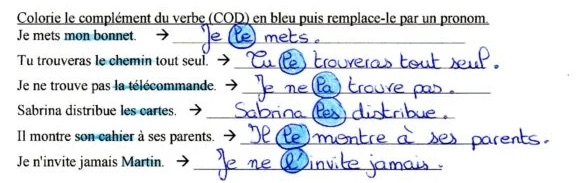 Colorie le complément du verbe (COD) en bleu puis remplace-le par un pronom.
Je mets mon bonnet. → Je le mets.
Tu trouveras le chemin tout seul. → Tu le trouveras tout seul.
Je ne trouve pas la télécommande. → Je ne la trouve pas.
Sabrina distribue les cartes. → Sabrina les distribue.
Il montre son cahier à ses parents. → Il le montre à ses parents.
Je n'invite jamais Martin. → Je ne l'invite jamais.